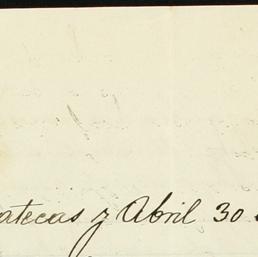 atecas y Abril 30